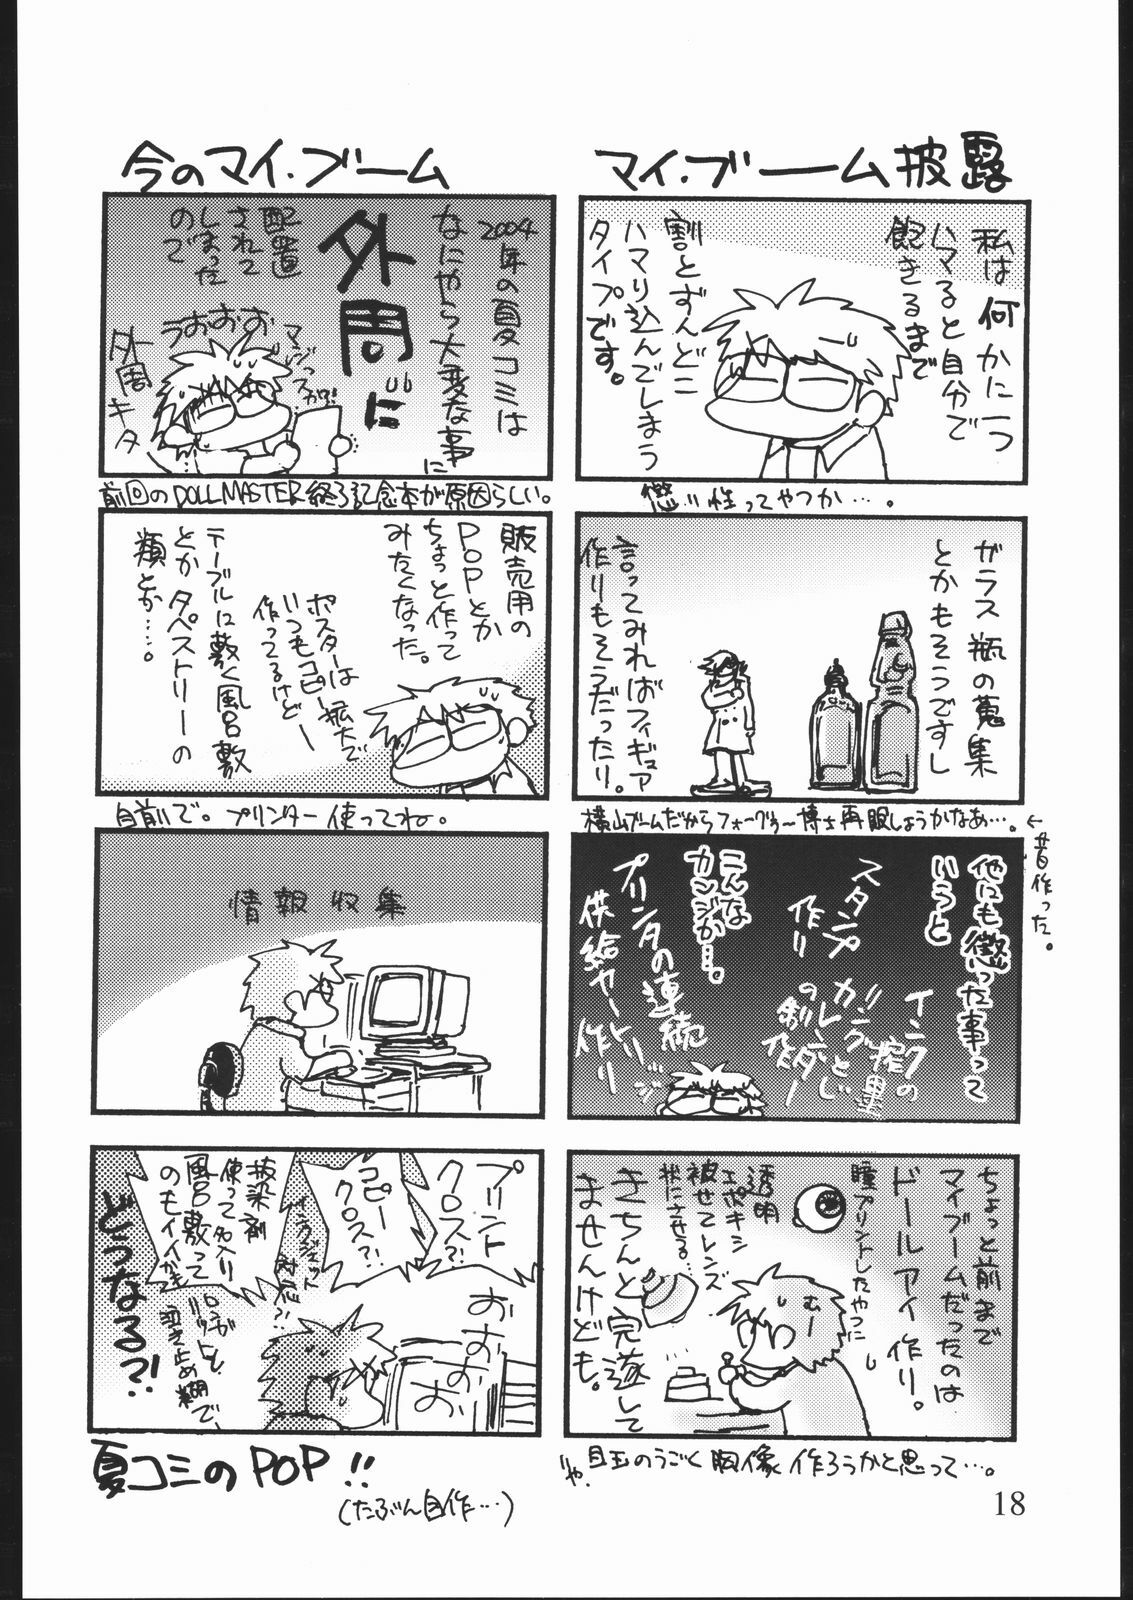 マイ・ブーム披露
私は何かにつ
ハマると自分で
飽きるまで
割とずんどこ
ハマり込んでしまう
タイプです。
懲り性ってやつか…。
ガラス瓶の蒐集
とかもそうですし
言ってみればフィギュア
作りもそうだったり。
横山ブームだからフォーグラー博士再販しようかなあ…。
←昔作った。
他にも懲った事って
いうと
インクの
スタンプ
作り
カレンダー
こんな
カンジか…。
プリンタの連続
供給ヤートリッジ
作り
ちょっと前まで
マイブームだったのは
ドールアイ作り。
瞳プリントしたやつに
透明
エポキシ
被せてレンズ
状にさせる…
むー
きちんと完遂して
ませんけども。
いや、目玉のうごく胸像作ろうかと思って…。
今のマイ・ブーム
2004年の夏コミは
なにやら大変な事に
外周に
配置
されて
しまった
ので
うおおお
マジっスか!
外周キタ
前回のDOLLMASTER終了記念本が原因らしい。
販売用の
POPとか
ちょっと作って
みたくなった。
ポスターは拡大で
いつもコピー
作ってるけどー
テーブルに敷く風呂敷
とかタペストリーの
類とか……。
自前で。プリンター使ってね。
情報収集
プリント
クロス?!
コピー
クロス?!
インクジェット
対応?!
抜染剤
使って名入り
風呂敷って
のもイイかも
おおおお
どうなる?!
夏コミのPOP!!
(たぶん自作…)
18